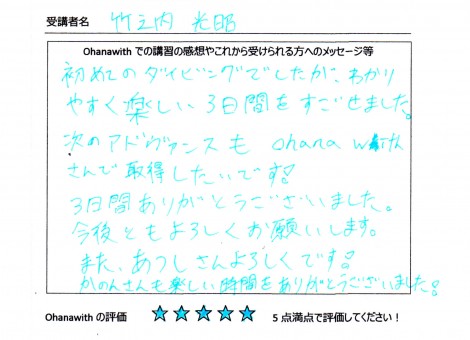 受講者名 竹之内 光昭
Ohanawith での講習の感想やこれから受けられる方へのメッセージ等
初めてのダイビングでしたが、わかり
やすく楽しい3日間をすごせました。
次のアドヴァンスも ohana with
さんで取得したいです!
3日間ありがとうございました。
今後ともよろしくお願いします。
また、あつしさんよろしくです!
かのんさんも楽しい時間をありがとうございました!
Ohanawith の評価 ★★★★★ 5 点満点で評価してください!